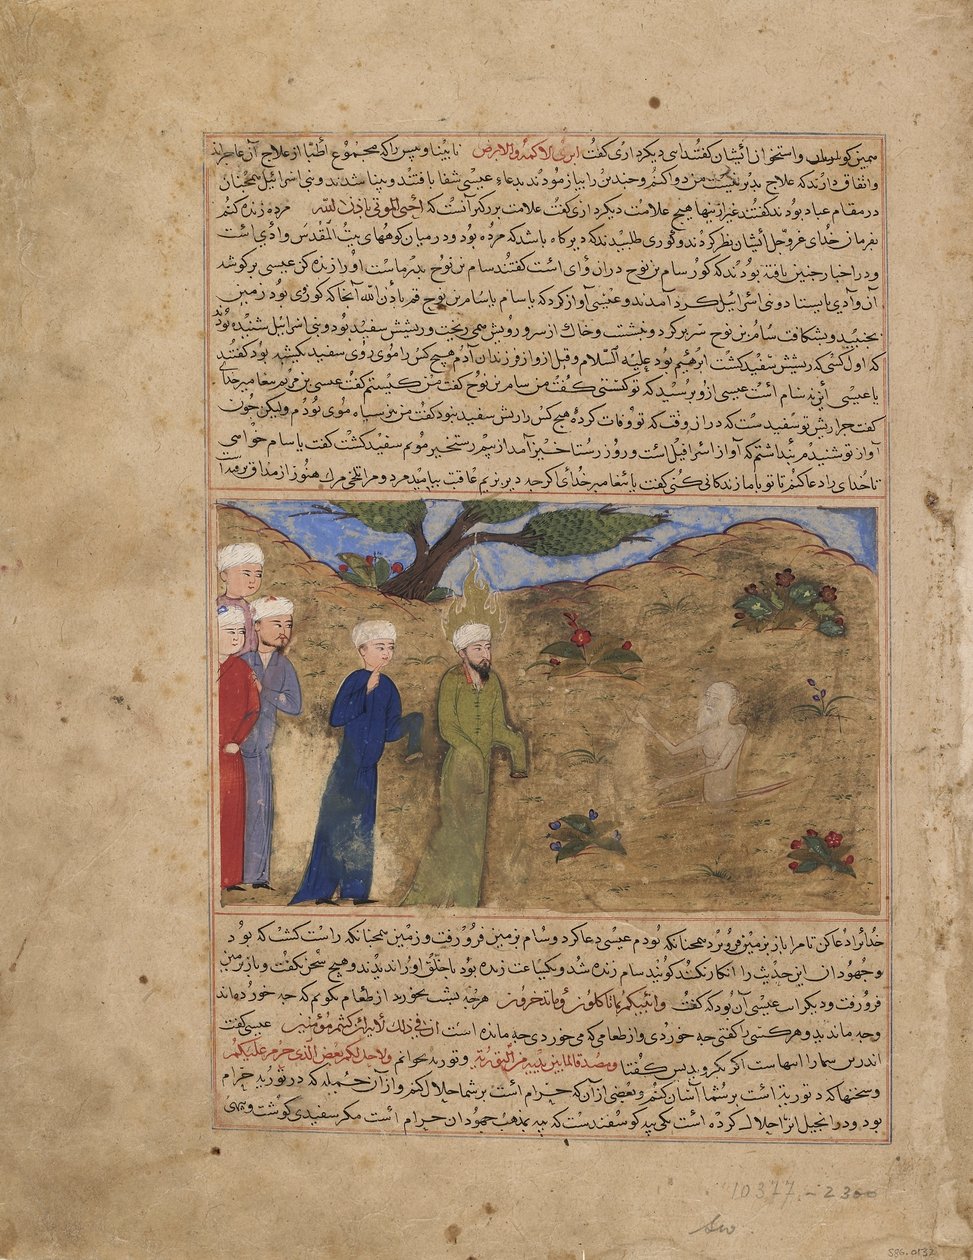 واستخوا از ایشان گفتند دیگر داری گفت ابرئ الاکمه والابرص نابینا وپیس را که مجموع اطبا از علاج آن عاجزاند
واتفاق دارند که علاج پذیر نیست من دوا کنم وچندین را بیازمودند بدعاء عیسی شفا یافتند وبینا شدند وبنی اسرائیل همچنان
در مقام عناد بودند گفتند غیر از اینها هیچ علامت دیگر داری گفت علامت بزرگتر آنست که احیی الموتی باذن الله مرده زنده کنم
بفرمان خدای عزوجل ایشان نظر کردند وگوری طلبیدند که دیرگاه باشد که مرده بود ودر میان کوههای بیت المقدس وادی است
ودر اخبار چنین یافته بودند که گور سام بن نوح دران وادی است گفتند سام بن نوح پدر ماست او را زنده کن عیسی بر گوشه
آن وادی بایستاد وبنی اسرائیل گرد آمدند وعیسی آواز کرد که یا سام یا سام بن نوح قم باذن الله آنجا که گور وی بود زمین
بجنبید وبشکافت سام بن نوح سر بر کرد وبنشست وخاک از سر ورویش می ریخت وریشش سفید بود وبنی اسرائیل شنیده بودند
که اول کسی که ریشش سفید گشت ابرهیم بود علیه السلام وقبل ازو از فرزندان آدم هیچ کس را موی روی سفید نگشته بود گفتند
یا عیسی این نه سام است عیسی ازو پرسید که تو کیستی گفت من سام بن نوح گفت من کیستم گفت عیسی بن مریم پیغامبر خدای
گفت چرا ریش تو سفیدست که دران وقت که تو وفات کرده هیچ کس را ریش سفید نبود گفت من سیاه موی بودم ولیکن چون
آواز تو شنیدم پنداشتم که آواز اسرافیل است وروز رستاخیز آمد از بیم رستخیز مویم سفید گشت گفت یا سام خواهی
تا خدای را دعا کنم تا تو با ما زندگانی کنی گفت یا پیغامبر خدای اگرچه دیر بزیم عاقبت بباید مرد ومرا تلخی مرگ هنوز از مذاق
خدایرا دعا کن تا مرا باز بزمین فرو برد همچنانکه بودم عیسی دعا کرد وسام بزمین فرو رفت وزمین همچنانکه راست گشت که بود
وجهودان این حدیث را انکار کنند گویند سام زنده شد ویکساعت زنده بود تا خلق او را بدیدند وهیچ سخن نگفت وباز بزمین
فرو رفت ودیگر آیت عیسی آن بود که گفت وانبئکم بما تاکلون وما تدخرون هرچه بشب بخورید از طعام بگویم که چه خورده‌اند
وچه ماندید وهر کسی را گفتی چه خوردی واز طعامی که می خوردی چه مانده است ان فی ذلک لایة لکم ان کنتم مؤمنین عیسی گفت
اندرین شما را آیتهاست اگر بگروید پس گفتا ومصدقا لما بین یدیه من التوریة وتوریة بخوانم ولاحل لکم بعض الذی حرم علیکم
وسختیها که در توریة است بر شما آسان کنم وبعضی از آن که حرام است بر شما حلال کنم واز آن جمله که در توریة حرام
بود ودر انجیل آنرا حلال کرده است یکی پیه گوسفندست که پیه بمذهب جهودان حرام است مگر سفیدی گوشت
10377.-2300
S86.0132